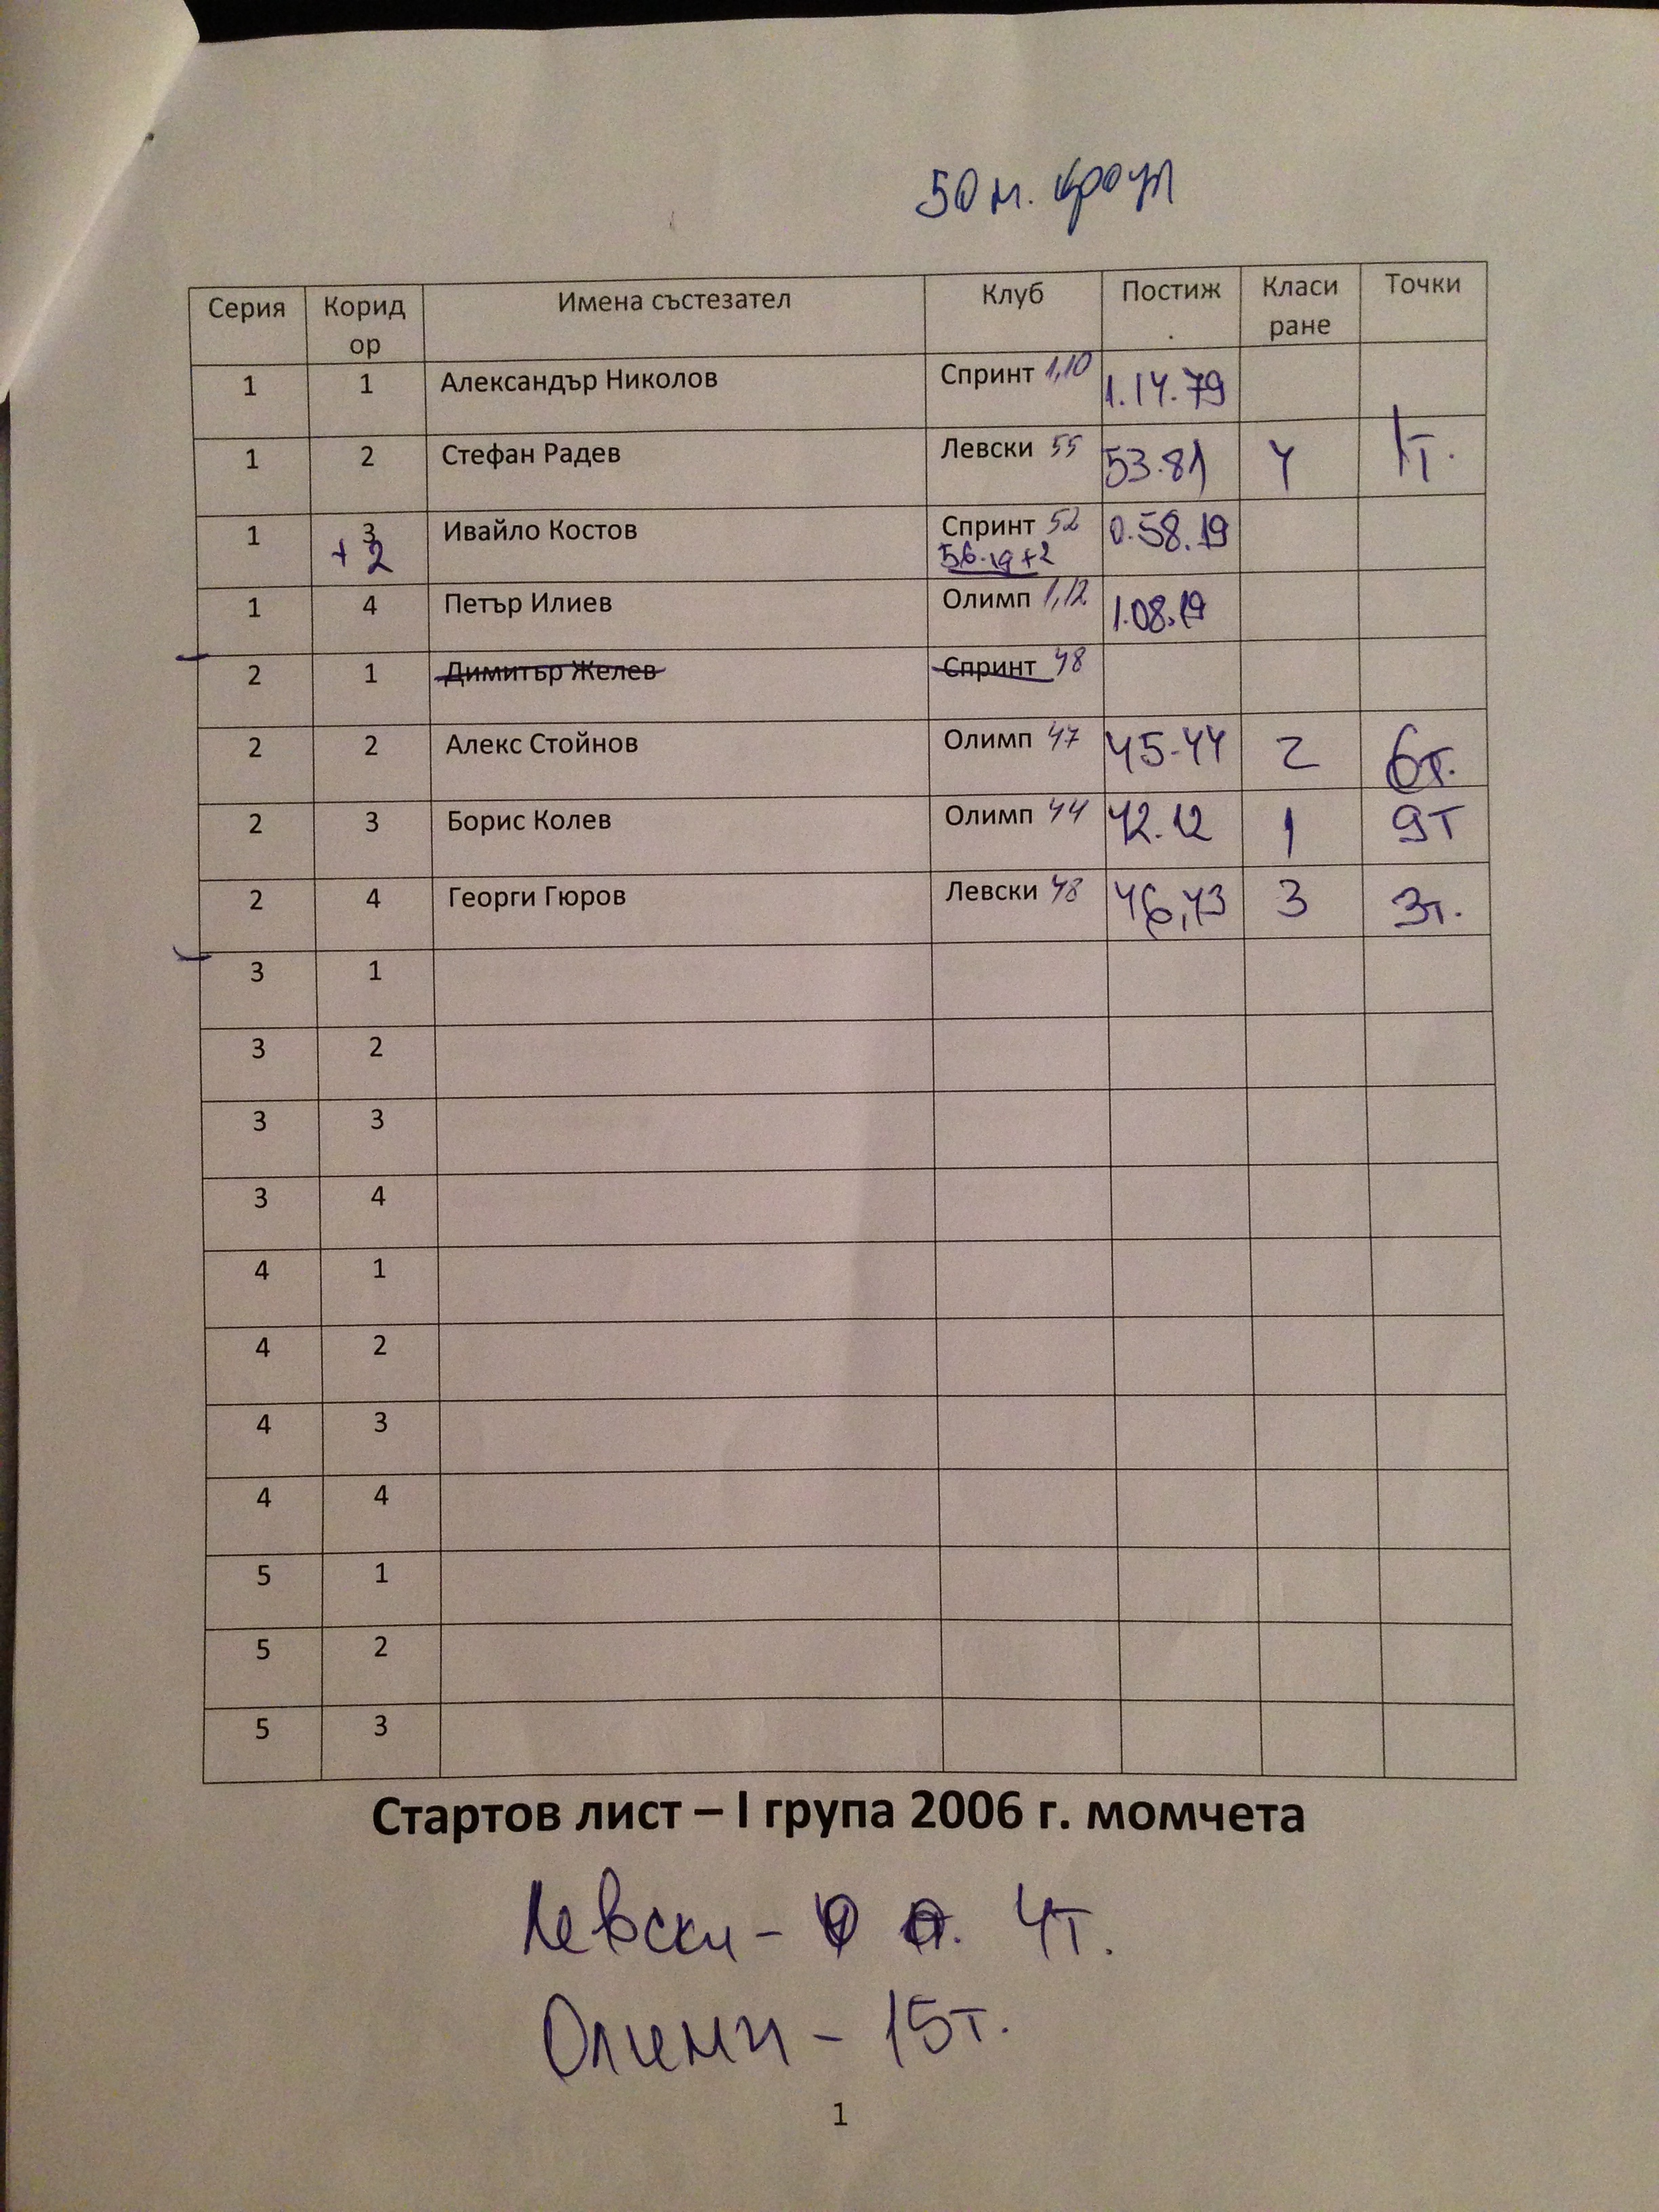 50 м. кроул
Серия Корид ор Имена състезател Клуб Постиж . Класи ране Точки
1 1 Александър Николов Спринт 1,10 1.14.79
1 2 Стефан Радев Левски 55 53.81 4 1т.
1 3 +2 Ивайло Костов Спринт 52 56.19+2 0.58.19
1 4 Петър Илиев Олимп 1,12 1.08.19
2 1 Димитър Желев Спринт 48
2 2 Алекс Стойнов Олимп 47 45.44 2 6т.
2 3 Борис Колев Олимп 44 42.12 1 9т
2 4 Георги Гюров Левски 48 46,43 3 3т.
3 1
3 2
3 3
3 4
4 1
4 2
4 3
4 4
5 1
5 2
5 3
Стартов лист – I група 2006 г. момчета
Левски - 4т.
Олимп - 15т.
1